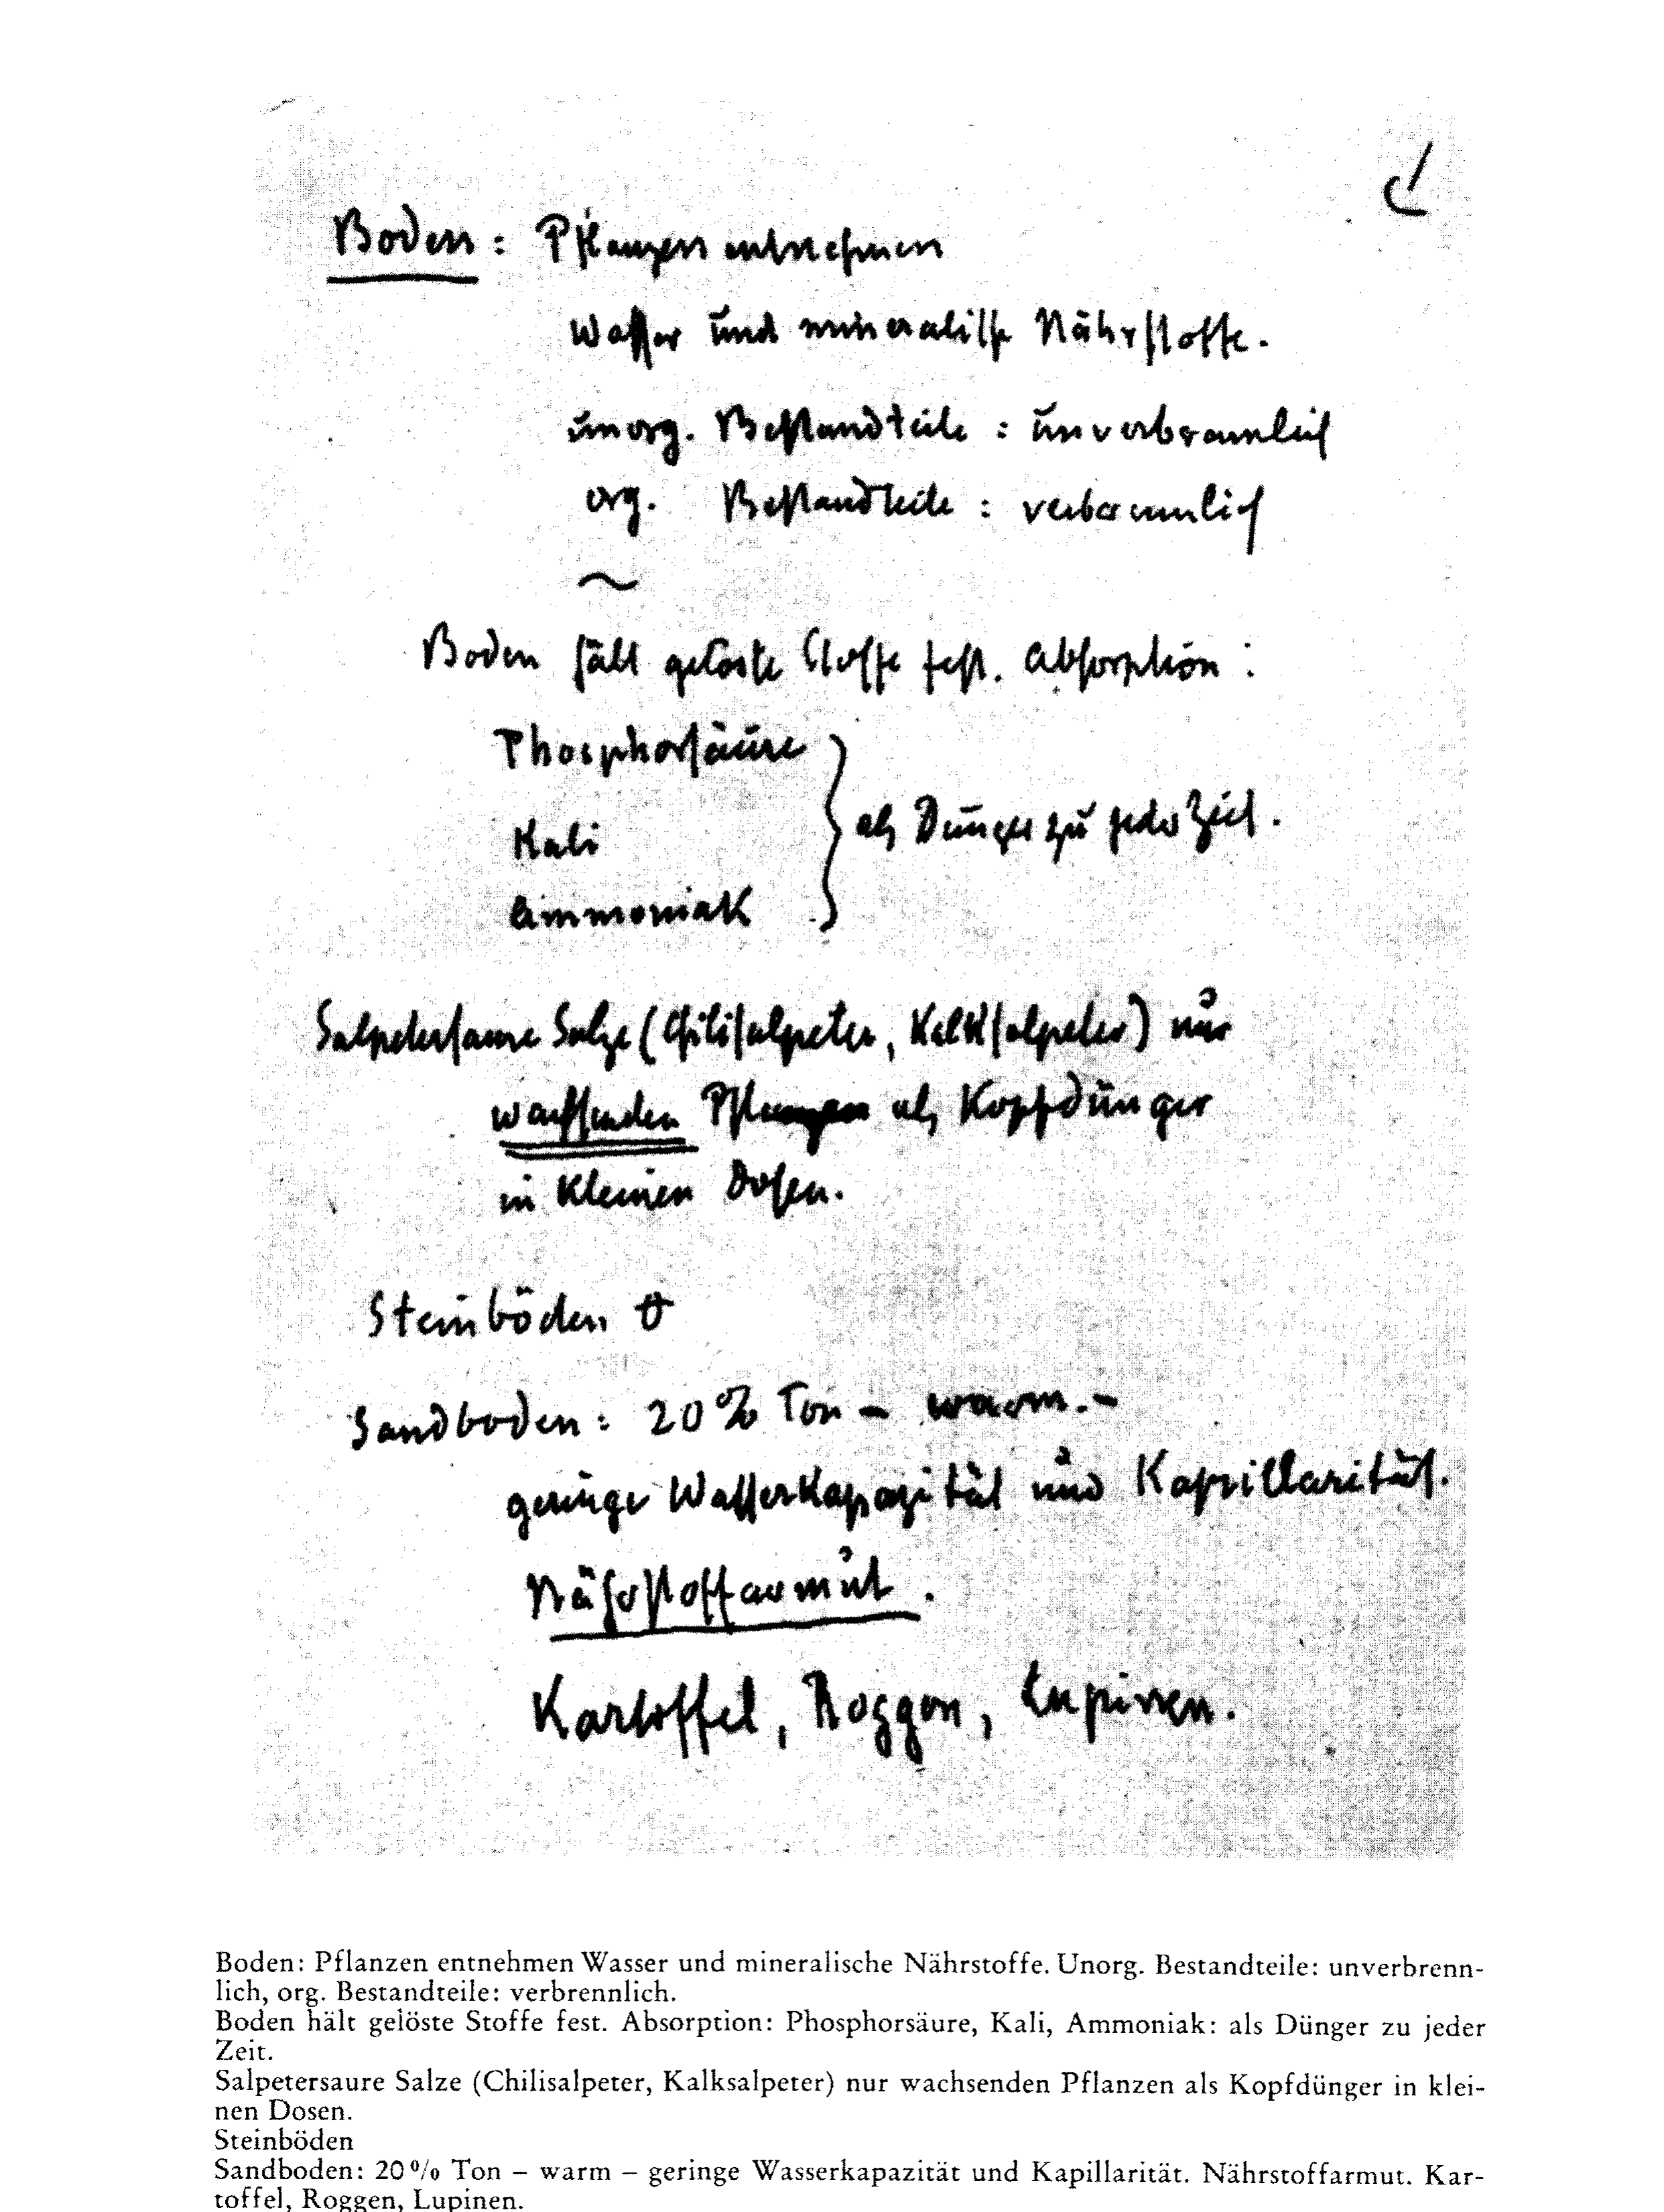 Boden: Pflanzen entnehmen
Wasser und mineralische Nährstoffe.
unorg. Bestandteile: unverbrennlich
org. Bestandteile: verbrennlich
~
Boden hält gelöste Stoffe fest. Absorption:
Phosphorsäure
Kali
Ammoniak
} als Dünger zu jeder Zeit.
Salpetersaure Salze (Chilisalpeter, Kalksalpeter) nur
wachsenden Pflanzen als Kopfdünger
in kleinen Dosen.
Steinböden
Sandboden: 20% Ton – warm. –
geringe Wasserkapazität und Kapillarität.
Nährstoffarmut.
Kartoffel, Roggen, Lupinen.
Boden: Pflanzen entnehmen Wasser und mineralische Nährstoffe. Unorg. Bestandteile: unverbrenn-
lich, org. Bestandteile: verbrennlich.
Boden hält gelöste Stoffe fest. Absorption: Phosphorsäure, Kali, Ammoniak: als Dünger zu jeder
Zeit.
Salpetersaure Salze (Chilisalpeter, Kalksalpeter) nur wachsenden Pflanzen als Kopfdünger in klei-
nen Dosen.
Steinböden
Sandboden: 20% Ton – warm – geringe Wasserkapazität und Kapillarität. Nährstoffarmut. Kar-
toffel, Roggen, Lupinen.